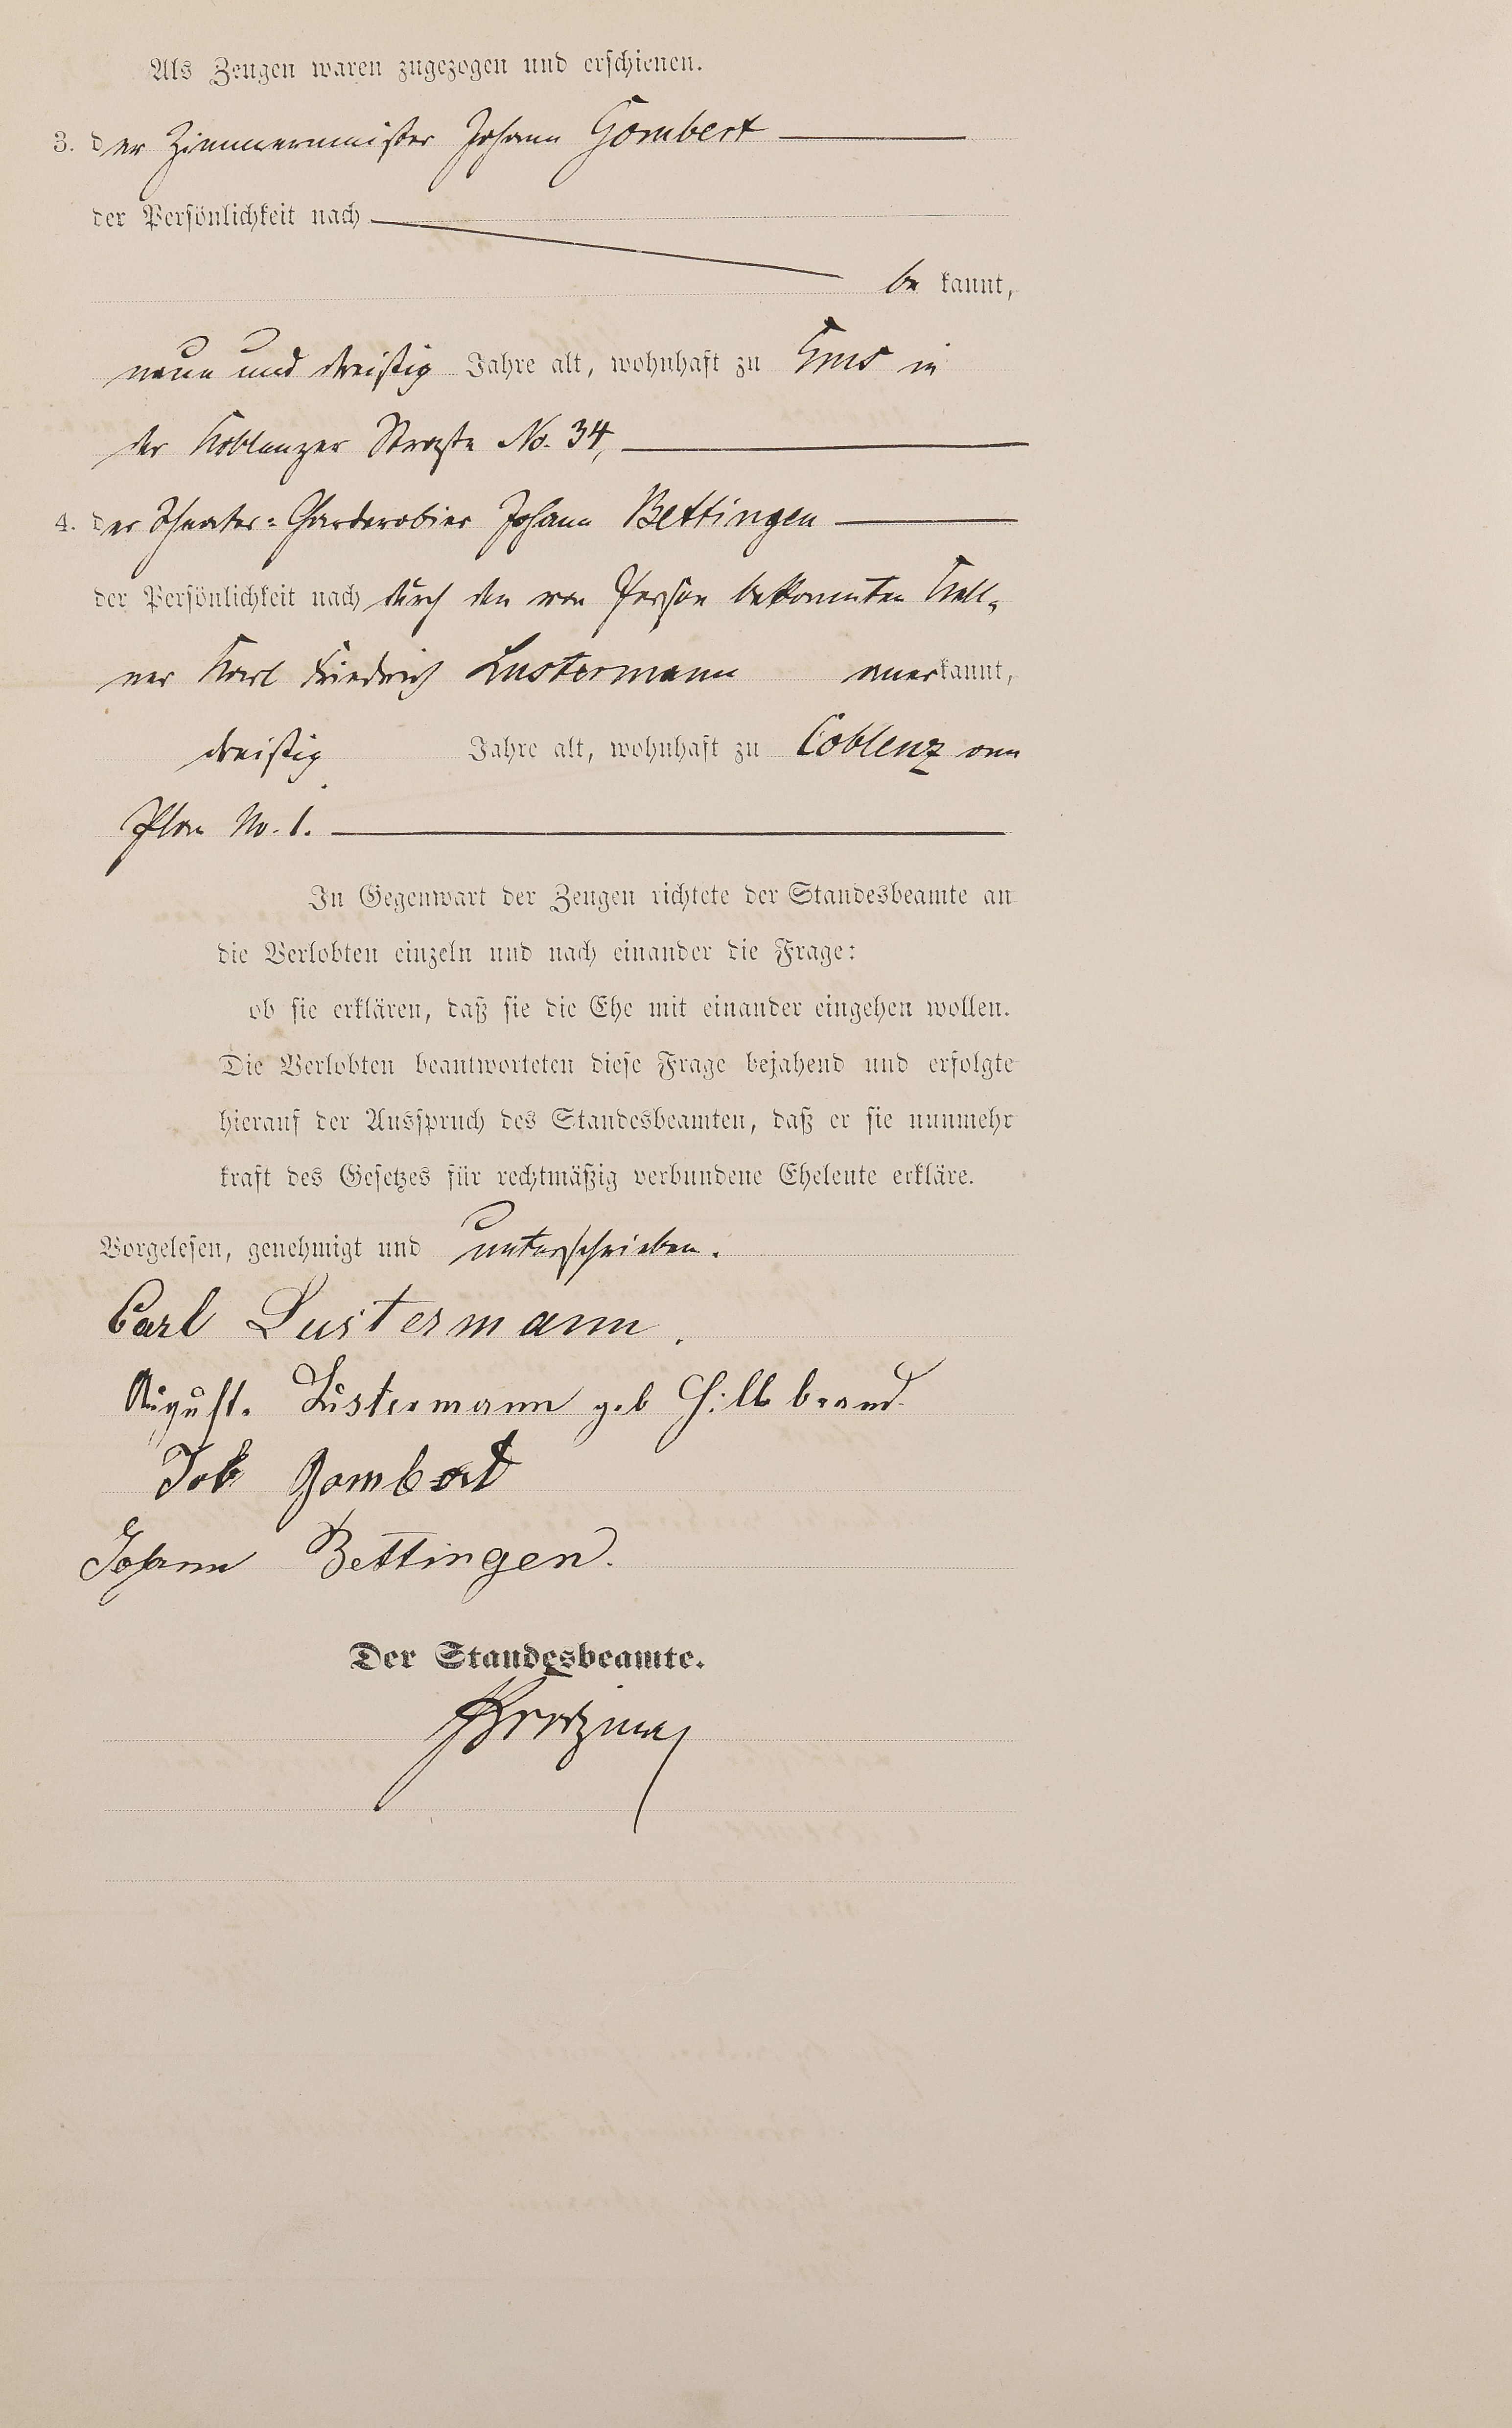 Als Zeugen waren zugezogen und erschienen.
3. der Zimmermeister Johann Gombert
der Persönlichkeit nach
be kannt,
neun und dreißig Jahre alt, wohnhaft zu Ems in
der Koblenzer Straße No. 34,
4. der Theater-Garderobier Johann Bettingen
der Persönlichkeit nach durch den von Person bekannten Kell-
ner Karl Friedrich Lustermann anerkannt,
dreißig Jahre alt, wohnhaft zu Coblenz am
Plan No. 1.
In Gegenwart der Zeugen richtete der Standesbeamte an
die Verlobten einzeln und nach einander die Frage:
ob sie erklären, daß sie die Ehe mit einander eingehen wollen.
Die Verlobten beantworteten diese Frage bejahend und erfolgte
hierauf der Ausspruch des Standesbeamten, daß er sie nunmehr
kraft des Gesetzes für rechtmäßig verbundene Eheleute erkläre.
Vorgelesen, genehmigt und unterschrieben.
Carl Lustermann.
August. Lustermann geb Hillebrand
Joh Gombert
Johann Bettingen.
Der Standesbeamte.